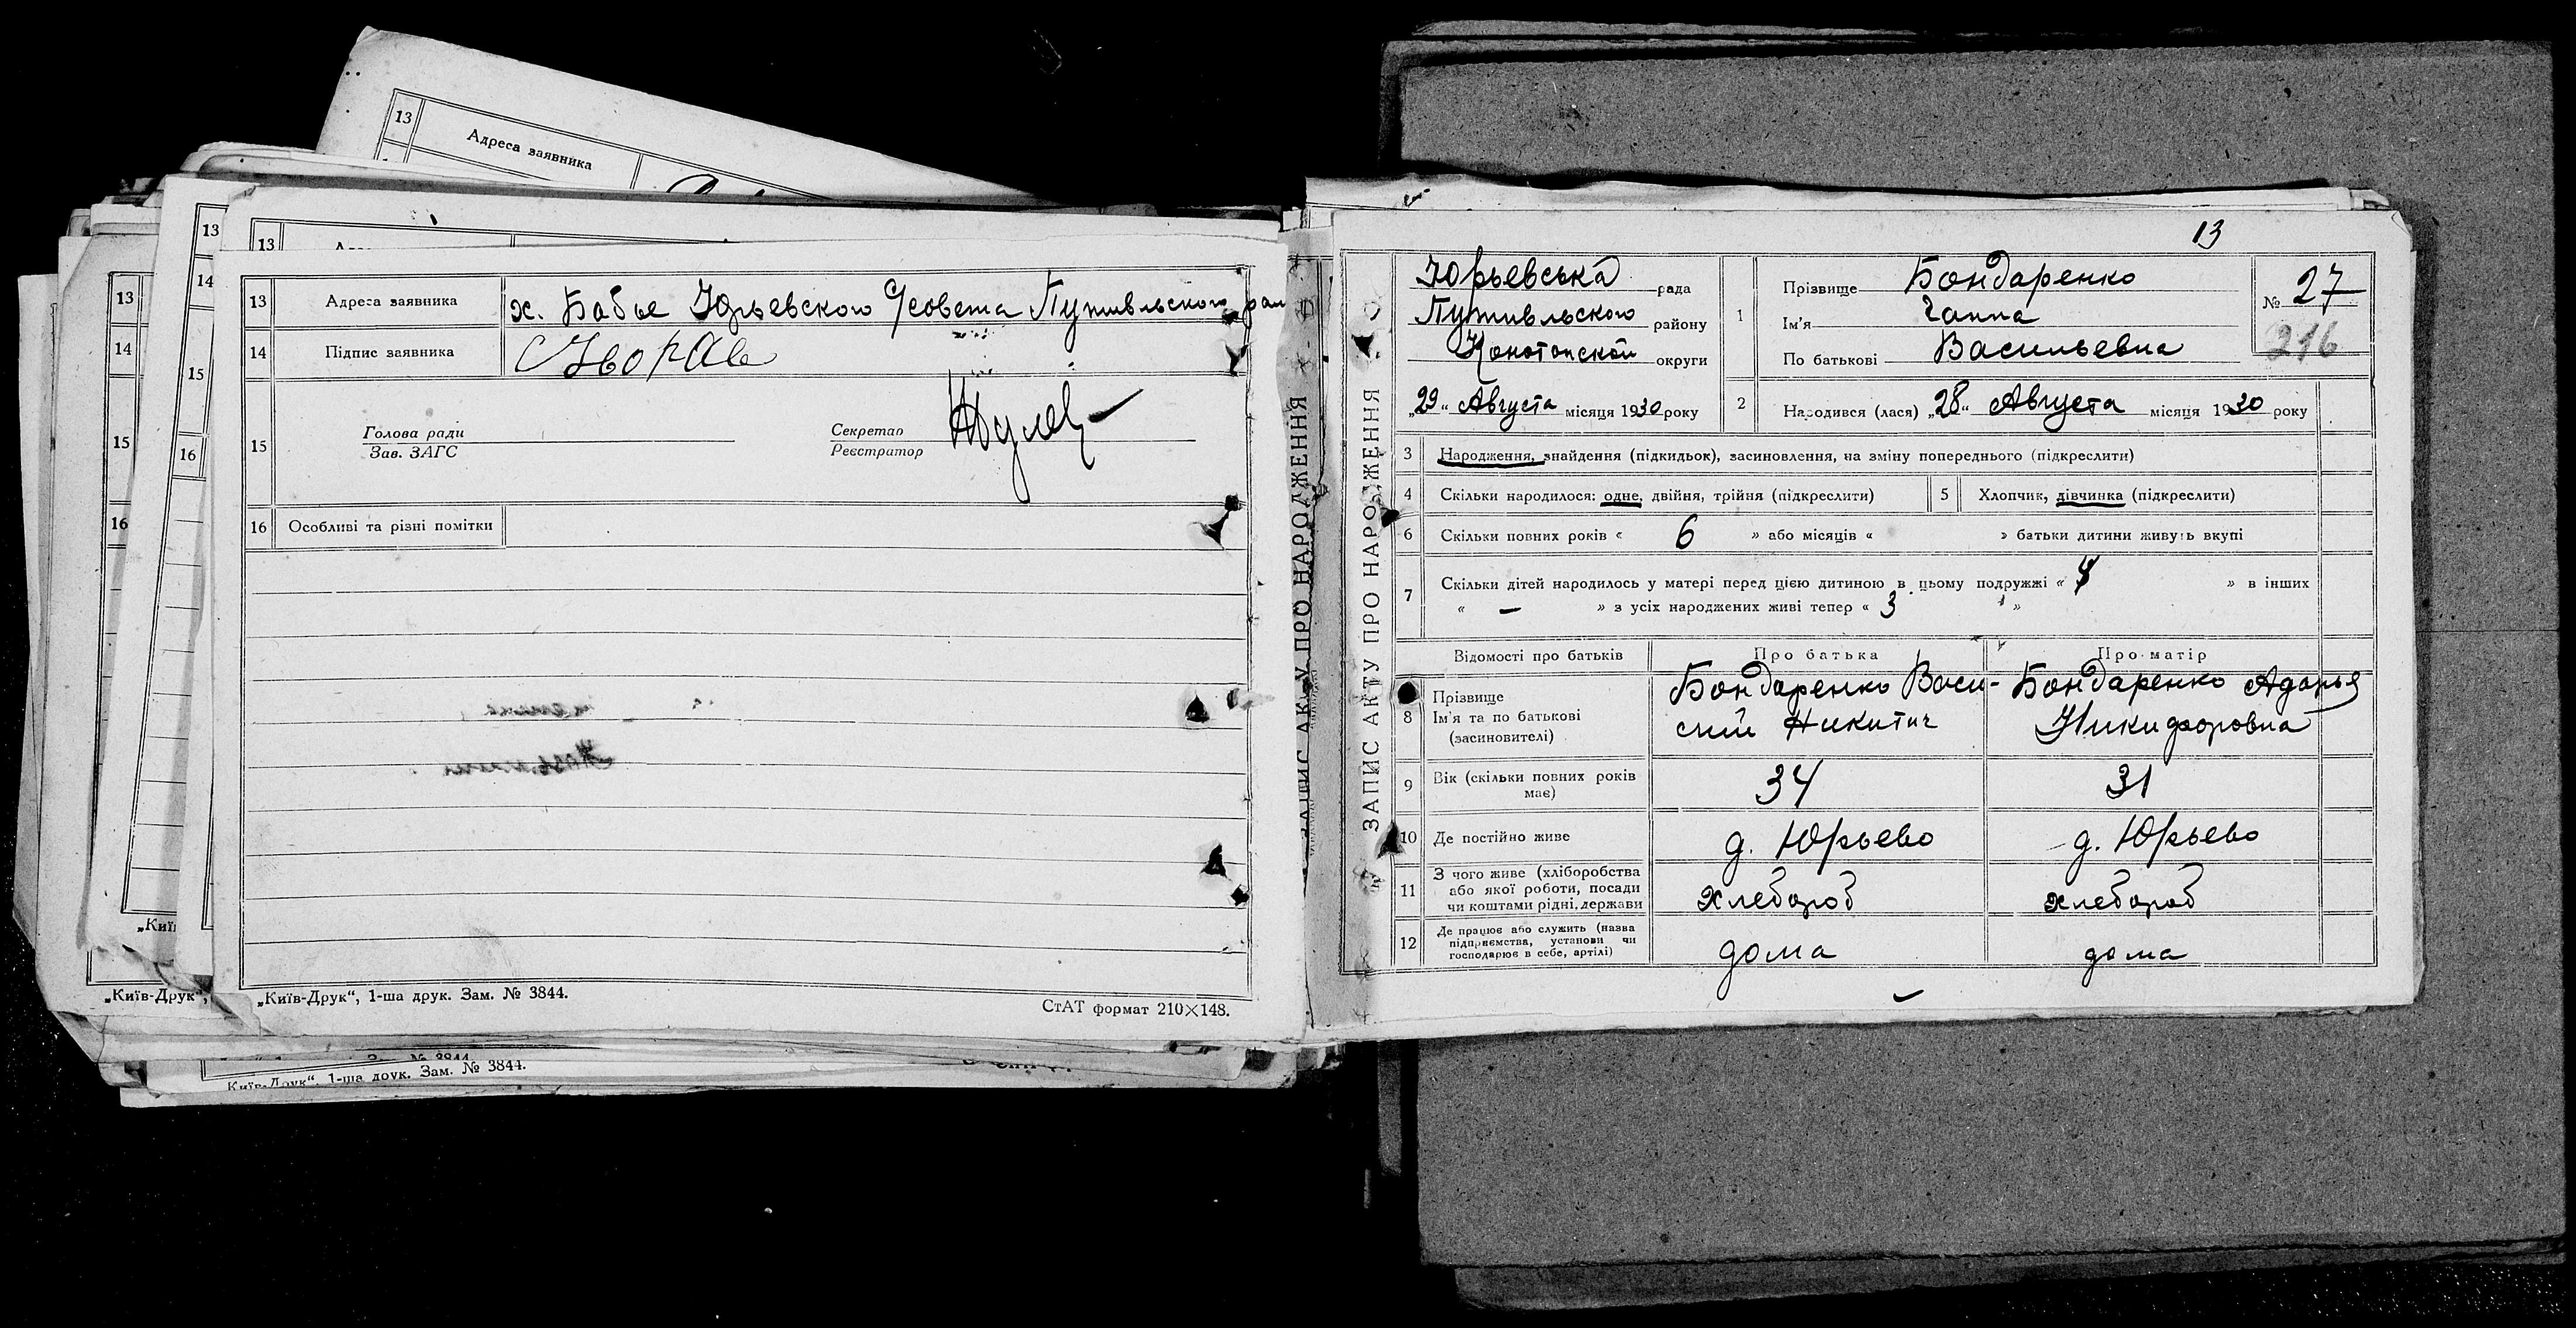 13
Адреса заявника
13
14
15
16
13
14
15
16
13
13 Адреса заявника х. Бабье Юрьевского С/совета Путивльского рай
14 Підпис заявника
15 Голова ради
Зав. ЗАГС
Секретар
Реєстратор
16 Особливі та різні помітки
„Київ-Друк“, 1-ша друк. Зам. № 3844.
СтАТ формат 210×148.
„Київ-Друк“,
„Киї
№ 3844
Київ-Друк“, 1-ша друк. Зам. № 3844.
ЗАПИС АКТУ ПРО НАРОДЖЕННЯ
ЗАПИС АКТУ ПРО НАРОДЖЕННЯ
13
Юрьевська рада
Путивльского району
Конотопской округи
„29“ Августа місяця 1930 року
1 Прізвище Бондаренко
Ім'я Ганна
По батькові Васильевна
№ 27
216
2 Народився (лася) „28“ Августа місяця 1930 року
3 Народження, знайдення (підкидьок), засиновлення, на зміну попереднього (підкреслити)
4 Скільки народилося: одне, двійня, трійня (підкреслити) 5 Хлопчик, дівчинка (підкреслити)
6 Скільки повних років « 6 » або місяців « » батьки дитини живуть вкупі
7 Скільки дітей народилось у матері перед цією дитиною в цьому подружжі « 4 » в інших
« — » з усіх народжених живі тепер « 3 »
Відомості про батьків Про батька Про матір
8 Прізвище
Ім'я та по батькові
(засиновителі)
Бондаренко Васи-
лий Никитич
Бондаренко Адарья
Никифоровна
9 Вік (скільки повних років
має)
34 31
10 Де постійно живе д. Юрьево д. Юрьево
11 З чого живе (хліборобства
або якої роботи, посади
чи коштами рідні, держави
хлебороб хлебороб
12 Де працює або служить (назва
підприємства, установи чи
господарює в себе, артілі)
дома дома